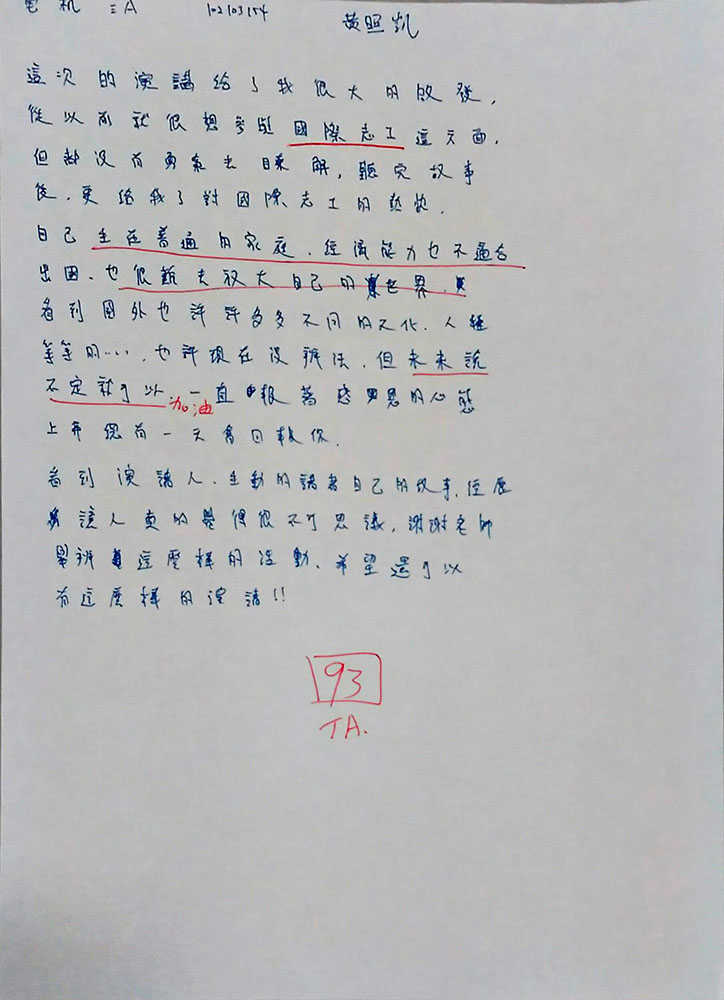 電机 三A 102103154 黃照凱
這次的演講給了我很大的啟發,
從以前就很想參與國際志工這方面,
但都沒有勇氣去瞭解,聽完故事
後,更給我了對國際志工的熱忱.
自己生在普通的家庭.經濟能力也不適合
出國、也很難去放大自己的世界.
看到國外也許許多多不同的文化.人種
等等的…,也許現在沒辦法,但未來說
不定就可以 一直抱著感恩的心態
加油
上帝總有一天會回報你.
看到演講人.生動的講著自己的故事.經歷
讓人真的覺得很不可思議,謝謝老師
舉辦這麼樣的活動、希望還可以
有這麼樣的演講!!
93
TA.